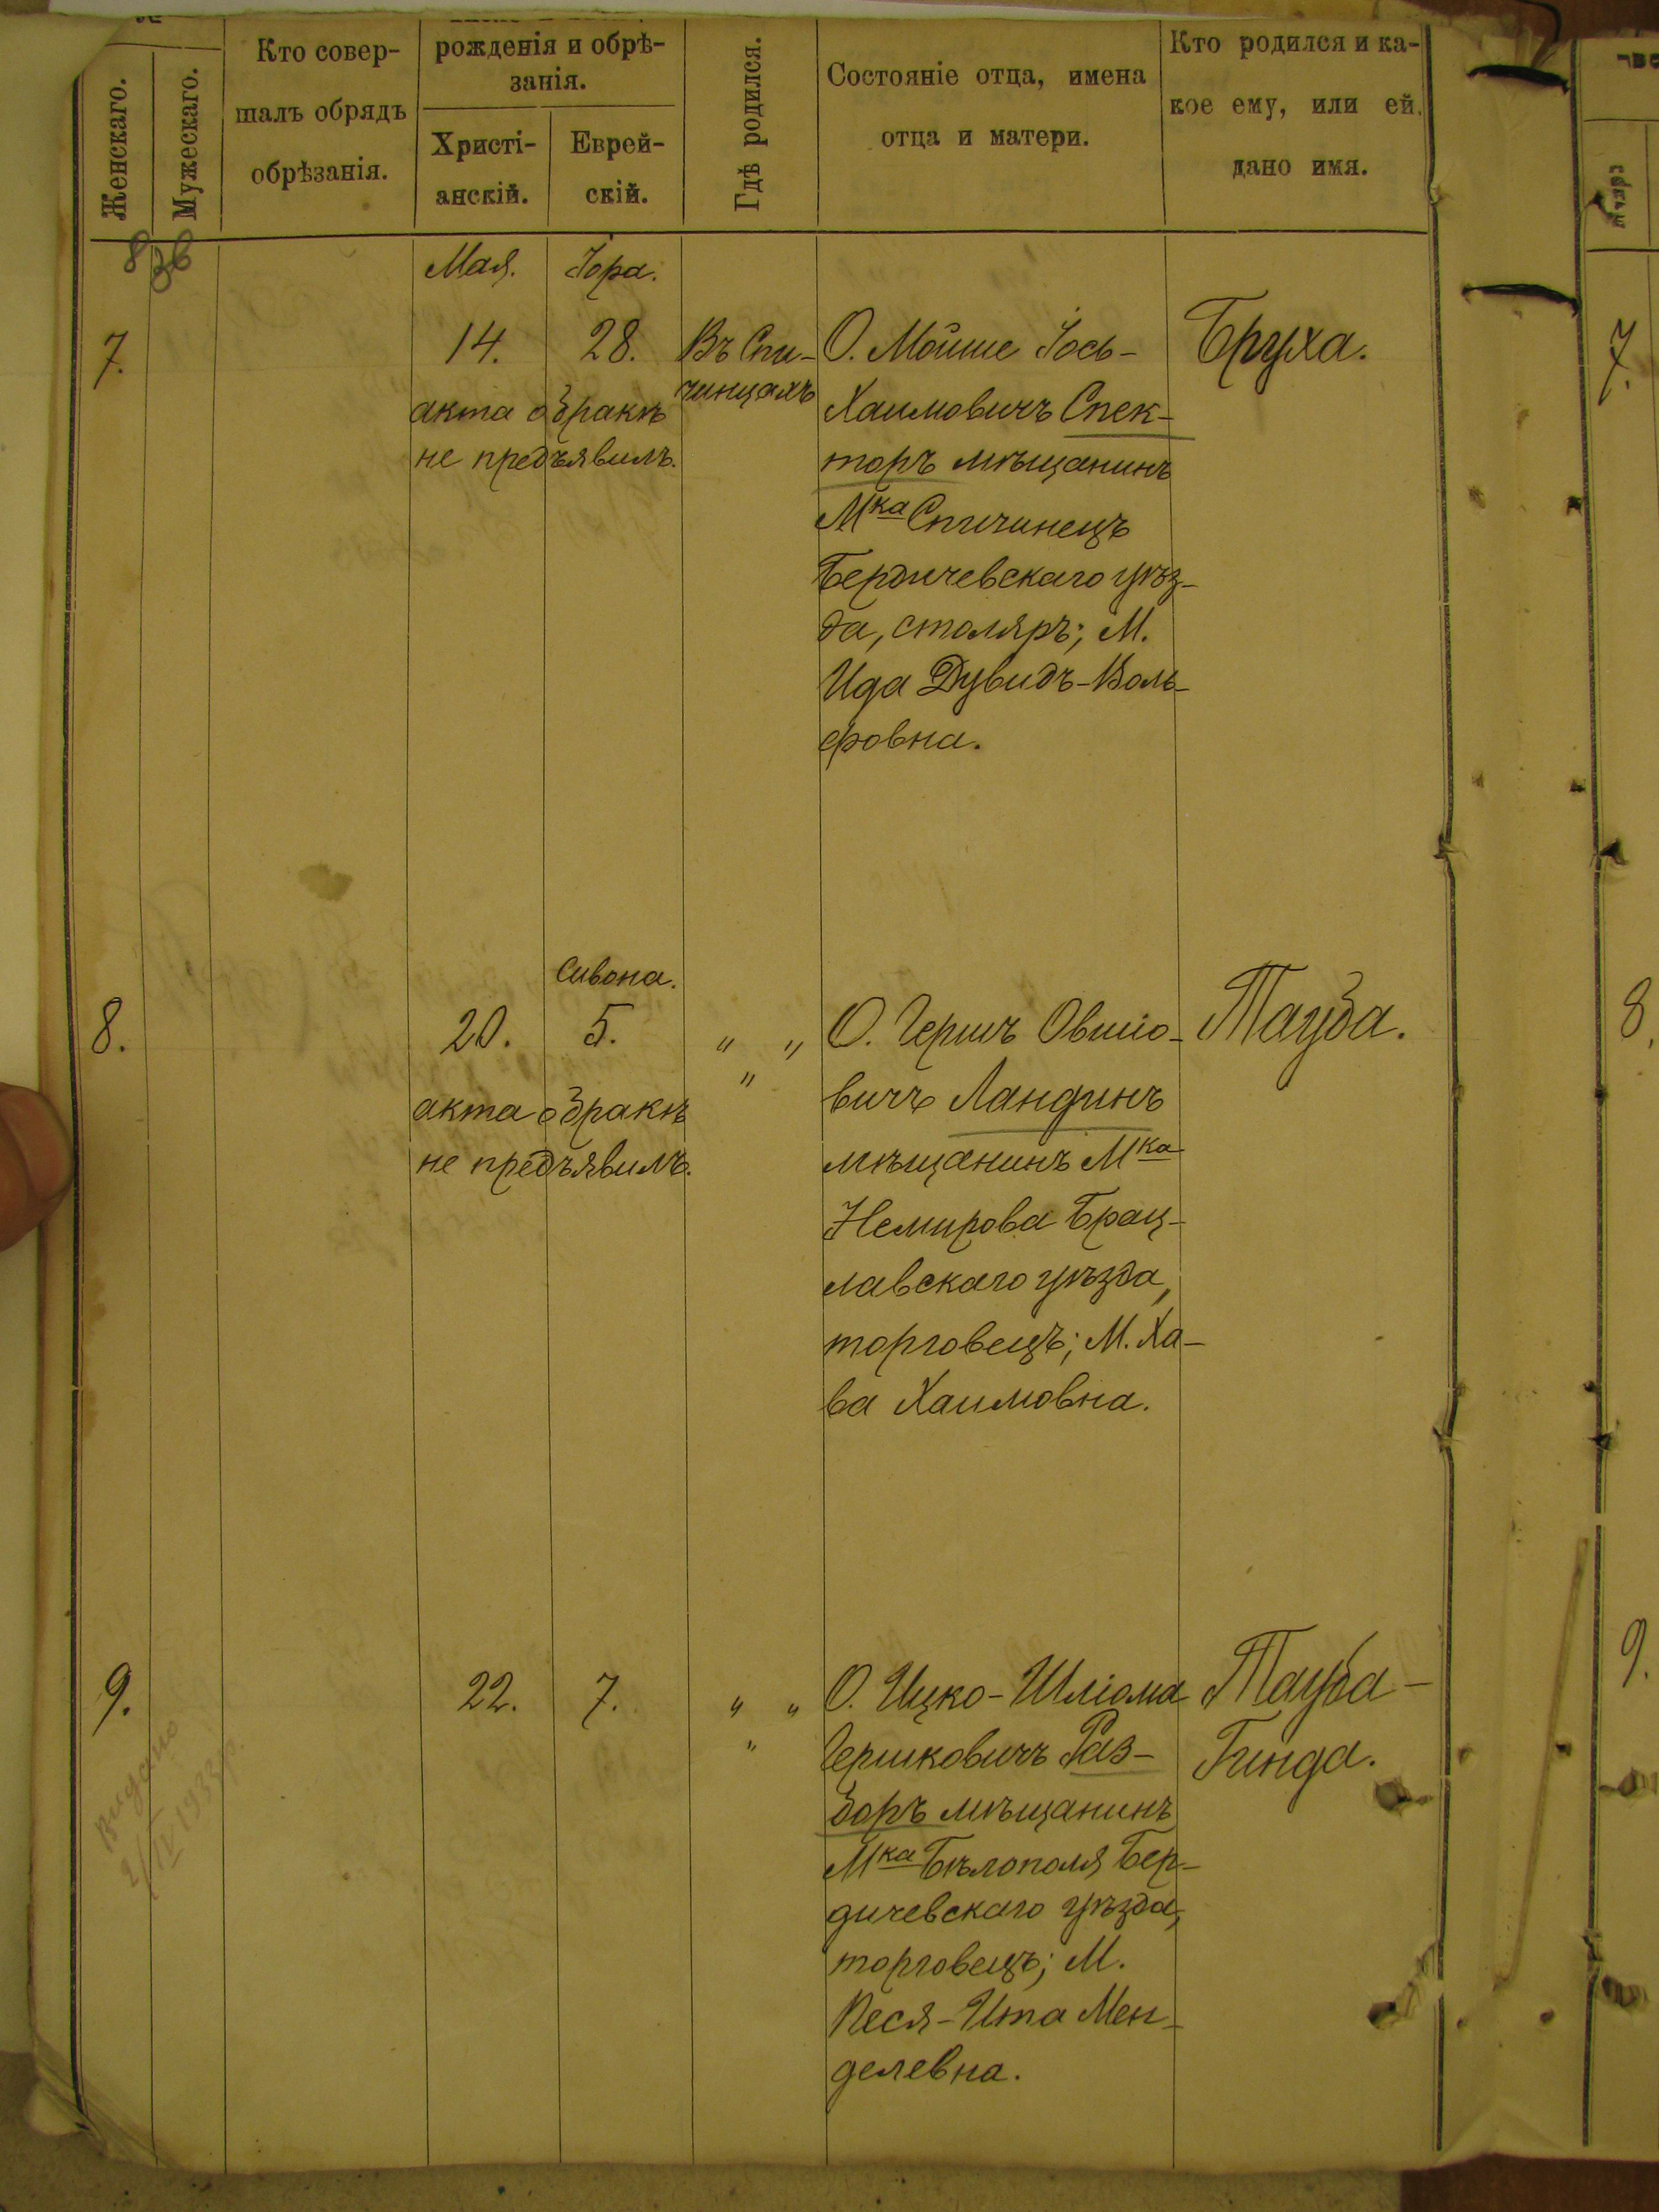 Женскаго.
Мужескаго.
Кто совер-
шалъ обрядъ
обрѣзанія.
рожденія и обрѣ-
занія.
Христі-
анскій.
Еврей-
скій.
Гдѣ родился.
Состояніе отца, имена
отца и матери.
Кто родился и ка-
кое ему, или ей,
дано имя.
836
Мая. Іора.
7. 14. 28.
акта о бракѣ
не предъявилъ.
Въ Спи-
чинцахъ
О. Мойше Іось-
Хаимовичъ Спек-
торъ мѣщанинъ
Мка Спичинецъ
Бердичевскаго уѣз-
да, столяръ; М.
Ида Дувидъ-Воль-
фовна.
Бруха.
7.
Сивона.
8. 20. 5. " "
"
акта о бракѣ
не предъявилъ.
О. Гершъ Овшіо-
вичъ Ландинъ
мѣщанинъ Мка
Немирова Брац-
лавскаго уѣзда,
торговецъ; М. Ха-
ва Хаимовна.
Тауба.
8.
9. 22. 7. " "
"
О. Ицко-Шліома
Гершковичъ Раз-
боръ мѣщанинъ
Мка Бѣлополя Бер-
дичевскаго уѣзда,
торговецъ; М.
Песя-Ита Мен-
делевна.
Тауба-
Гинда.
9.
Видано
2/IV 1933р.